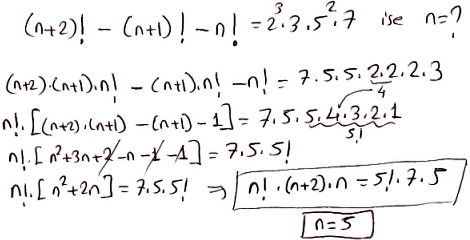 (n+2)! - (n+1)! - n! = 2³.3.5².7 ise n=?
(n+2).(n+1).n! - (n+1).n! - n! = 7.5.5.2.2.2.3
4
n!.[(n+2).(n+1) - (n+1) - 1] = 7.5.5.4.3.2.1
5!
n!.[n²+3n+2-n-1-1] = 7.5.5!
n!.[n²+2n] = 7.5.5! ⇒ n!.(n+2).n = 5!.7.5
n=5